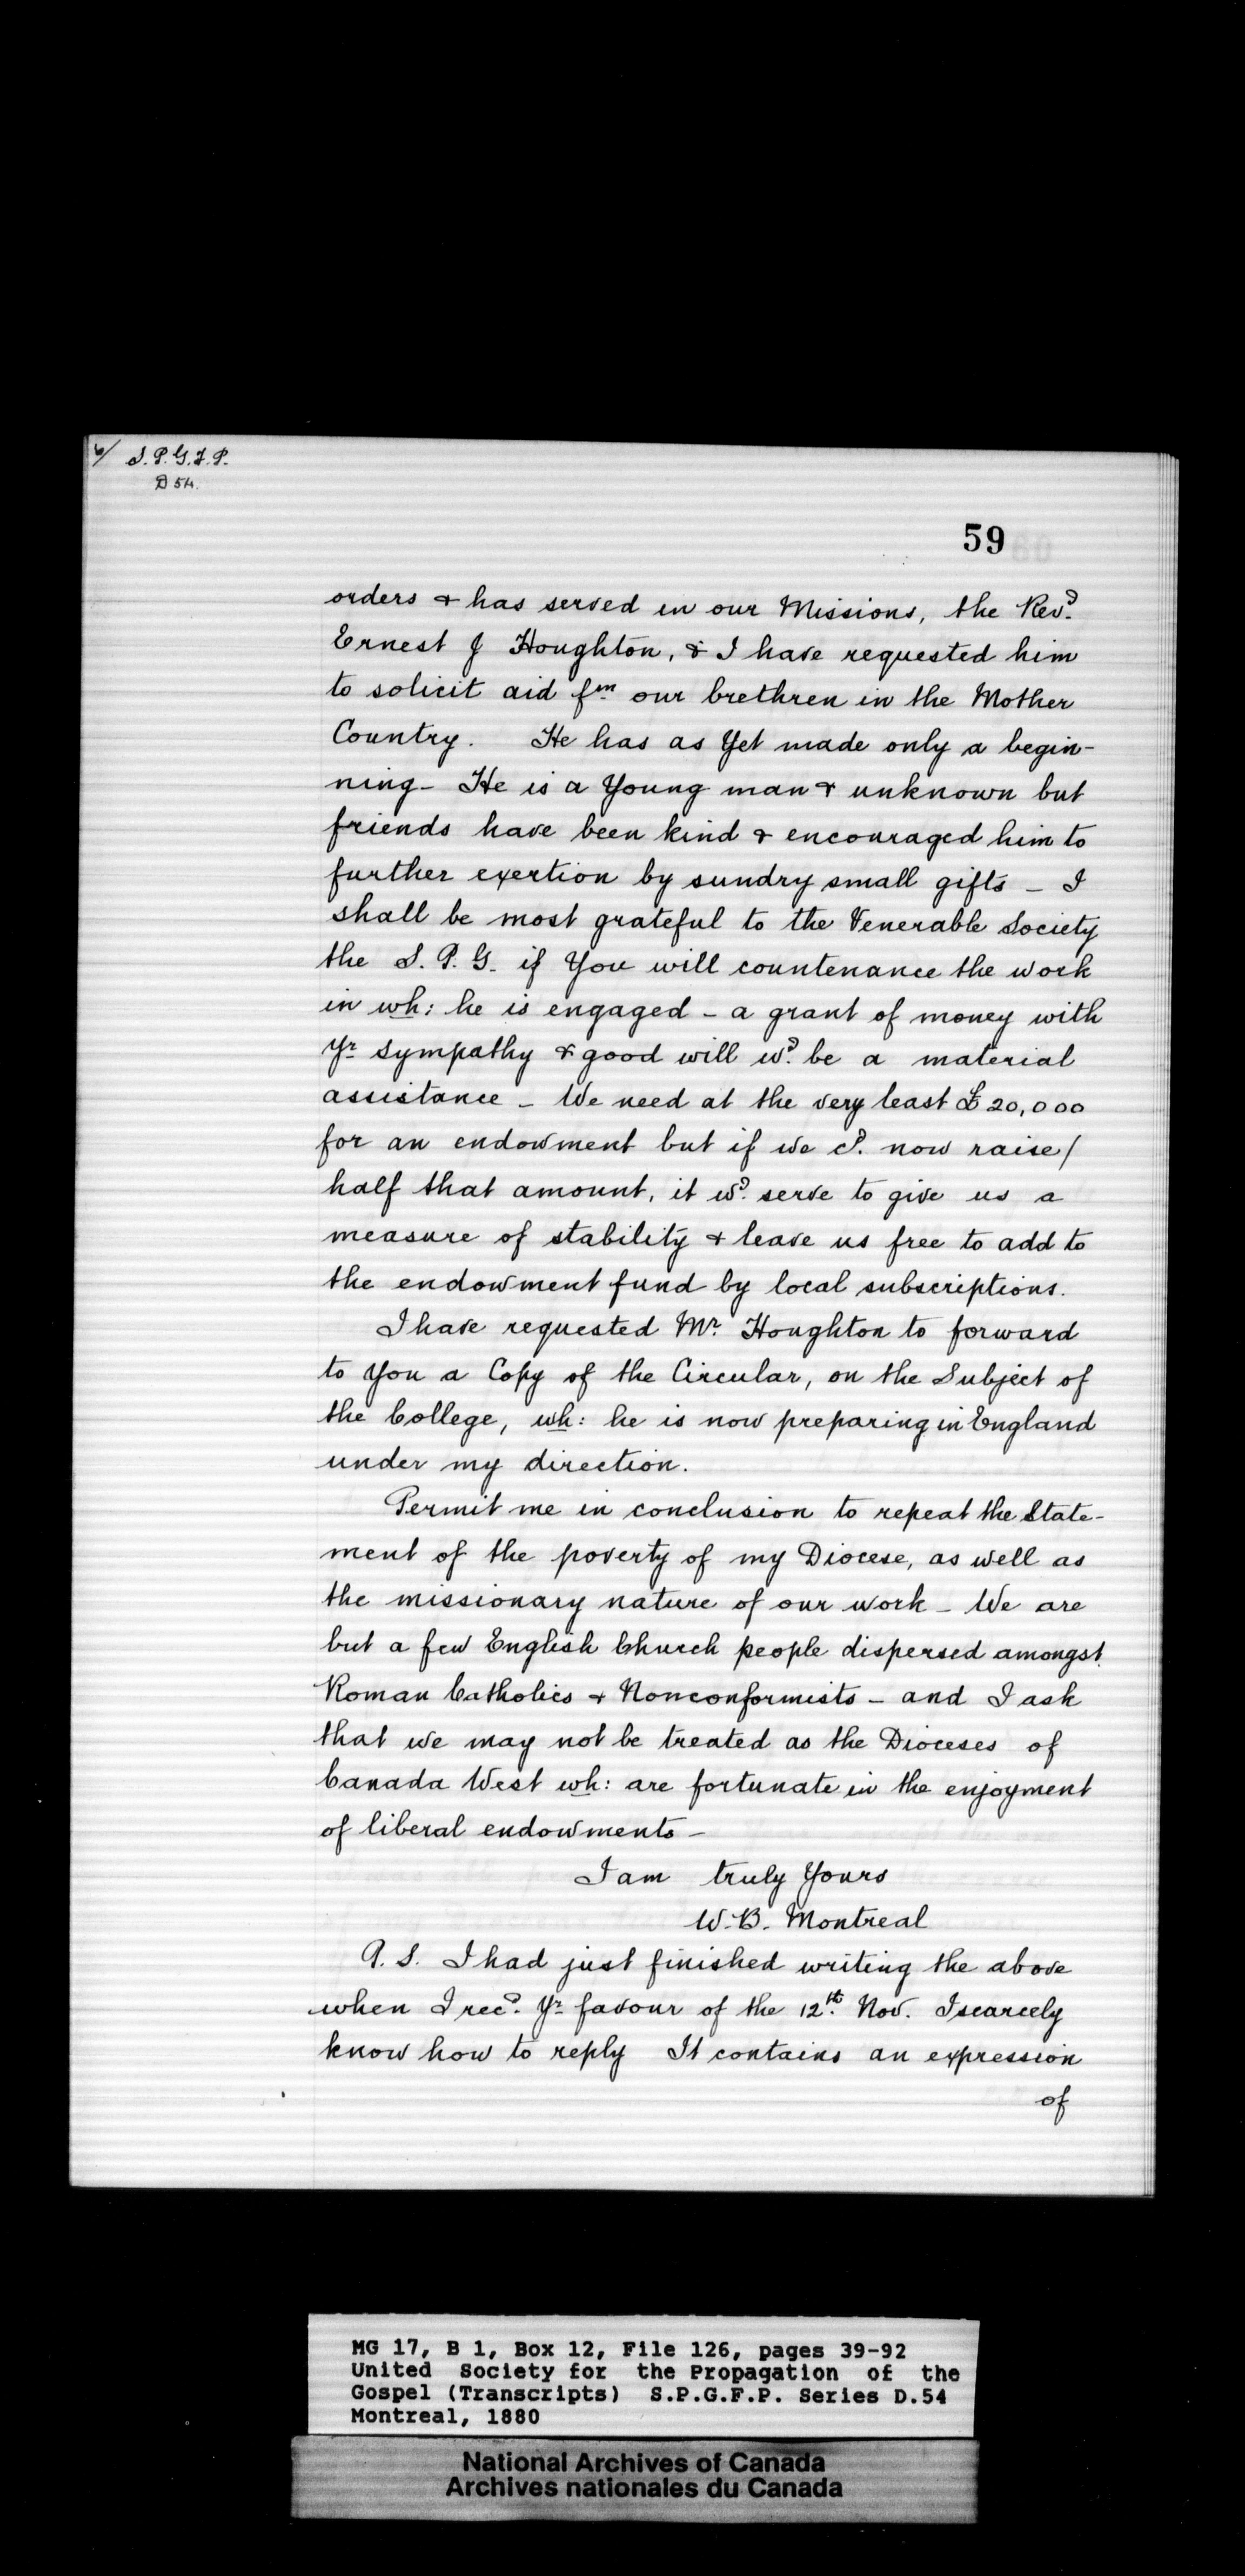 6/ S.P.G.F.P.
D 54.
59
orders & has served in our Missions, the Revd.
Ernest J Houghton, & I have requested him
to solicit aid fm our brethren in the Mother
Country. He has as Yet made only a begin-
ning - He is a Young man & unknown but
friends have been kind & encouraged him to
further exertion by sundry small gifts - I
shall be most grateful to the Venerable Society
the S. P. G. if You will countenance the work
in wh: he is engaged - a grant of money with
Yr sympathy & good will wd. be a material
assistance - We need at the very least £20,000
for an endowment but if we cd. now raise/
half that amount, it wd. serve to give us a
measure of stability & leave us free to add to
the endowment fund by local subscriptions.
I have requested Mr. Houghton to forward
to You a Copy of the Circular, on the Subject of
the College, wh: he is now preparing in England
under my direction.
Permit me in conclusion to repeat the State-
ment of the poverty of my Diocese, as well as
the missionary nature of our work - We are
but a few English Church people dispersed amongst
Roman Catholics & Nonconformists - and I ask
that we may not be treated as the Dioceses of
Canada West wh: are fortunate in the enjoyment
of liberal endowments -
I am truly Yours
W. B. Montreal
P. S. I had just finished writing the above
when I recd. Yr favour of the 12th. Nov. I scarcely
know how to reply It contains an expression
of
MG 17, B 1, Box 12, File 126, pages 39-92
United Society for the Propagation of the
Gospel (Transcripts) S.P.G.F.P. Series D.54
Montreal, 1880
National Archives of Canada
Archives nationales du Canada